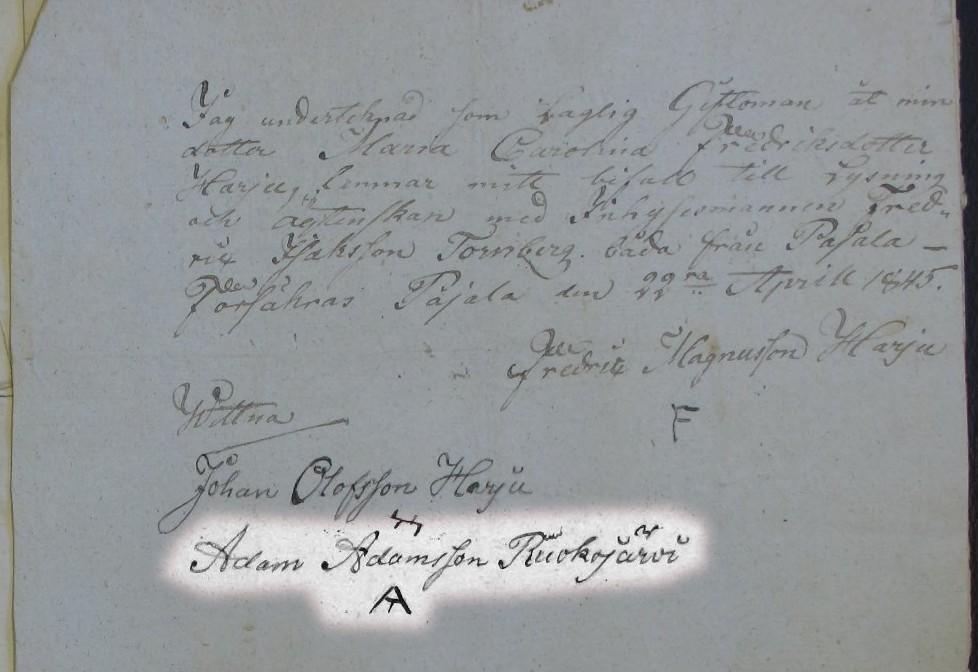 Jag undertecknad som Laglig Giftoman åt min
dotter Maria Carolina Fredriksdotter
Harju, lemnar mitt bifall till Lysning
och ägtenskan med Inhysesmannen Fred-
rik Isaksson Tornberg. båda från Pajala –
Försäkras Pajala den 22ra Aprill 1845.
Fredrik Magnusson Harju
F
Wittna
Johan Olofsson Harju
Adam Adamsson Ruokojärvi
A